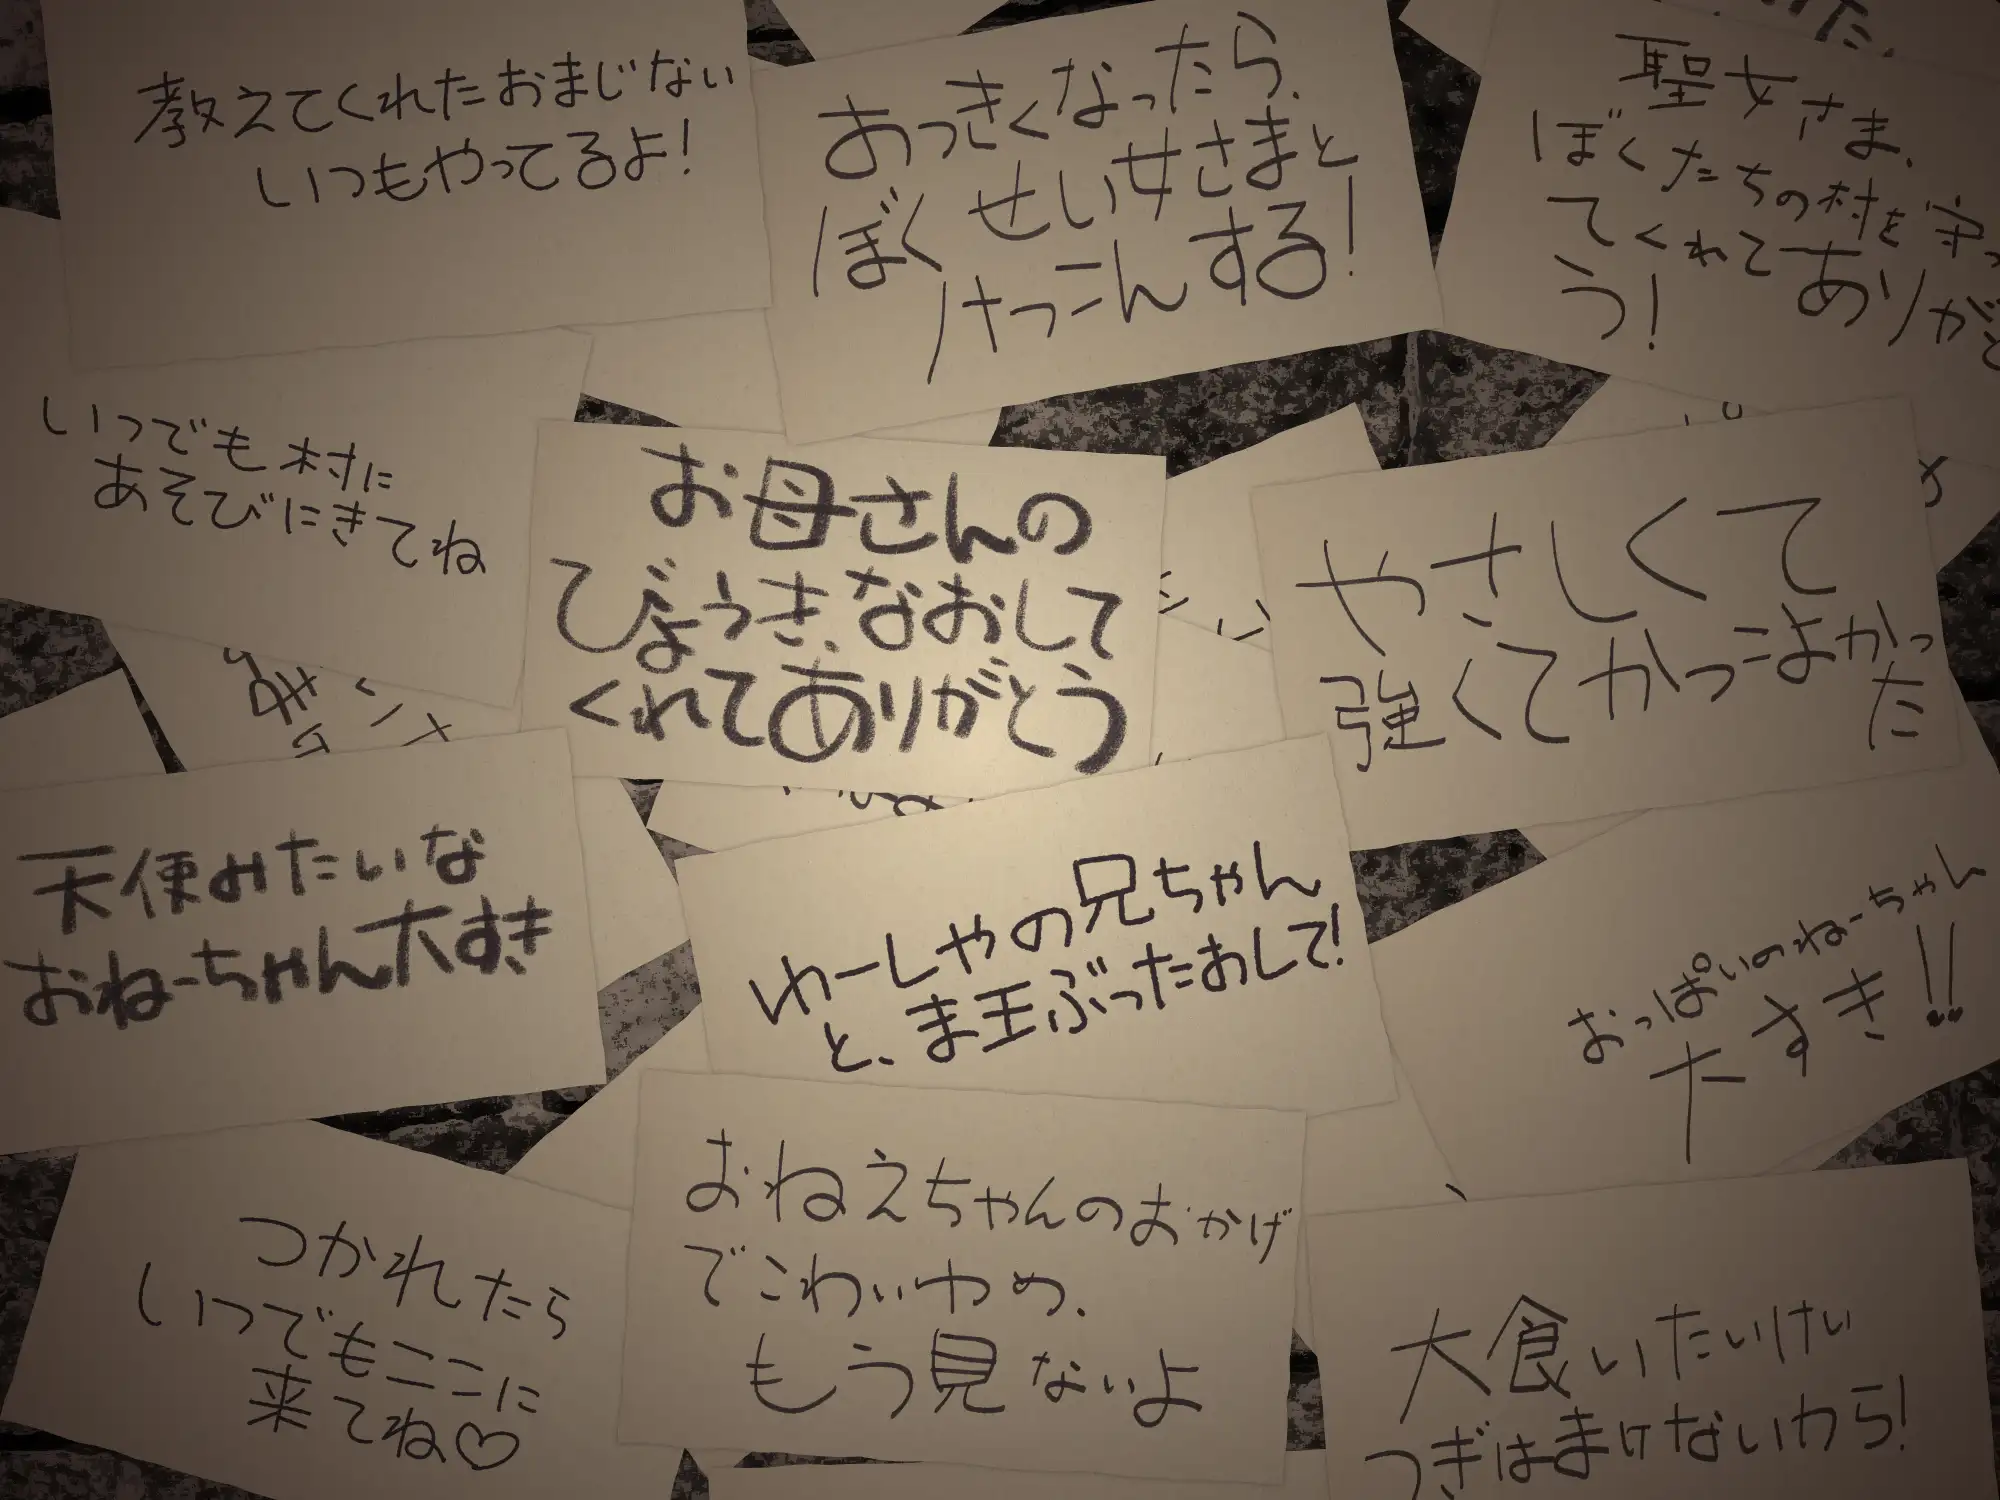 教えてくれたおまじない
いつもやってるよ!
あっきくなったら、
ぼく せい女さまと
けっこんする!
聖女さま、
ぼくたちの村を守っ
てくれてありがと
う!
いつでも村に
あそびにきてね
お母さんの
びょうき、なおして
くれてありがとう
やさしくて
強くてかっこよかっ
た
天使みたいな
おねーちゃん大すき
ゆーしゃの兄ちゃん
と、ま王ぶったおして!
おっぱいのねーちゃん
すき!!
つかれたら
いつでもここに
来てね♡
おねえちゃんのおかげ
でこわいゆめ、
もう見ないよ
大食いたいけい
つぎはまけないから!